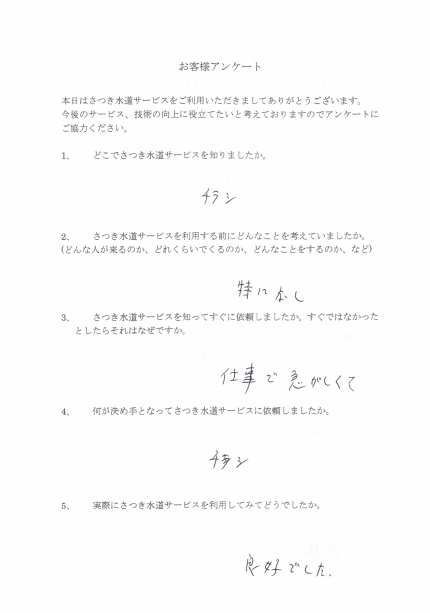 お客様アンケート
本日はさつき水道サービスをご利用いただきましてありがとうございます。
今後のサービス、技術の向上に役立てたいと考えておりますのでアンケートに
ご協力ください。
1、 どこでさつき水道サービスを知りましたか。
チラシ
2、 さつき水道サービスを利用する前にどんなことを考えていましたか。
(どんな人が来るのか、どれくらいでくるのか、どんなことをするのか、など)
特になし
3、 さつき水道サービスを知ってすぐに依頼しましたか。すぐではなかった
としたらそれはなぜですか。
仕事で急がしくて
4、 何が決め手となってさつき水道サービスに依頼しましたか。
チラシ
5、 実際にさつき水道サービスを利用してみてどうでしたか。
良好でした.